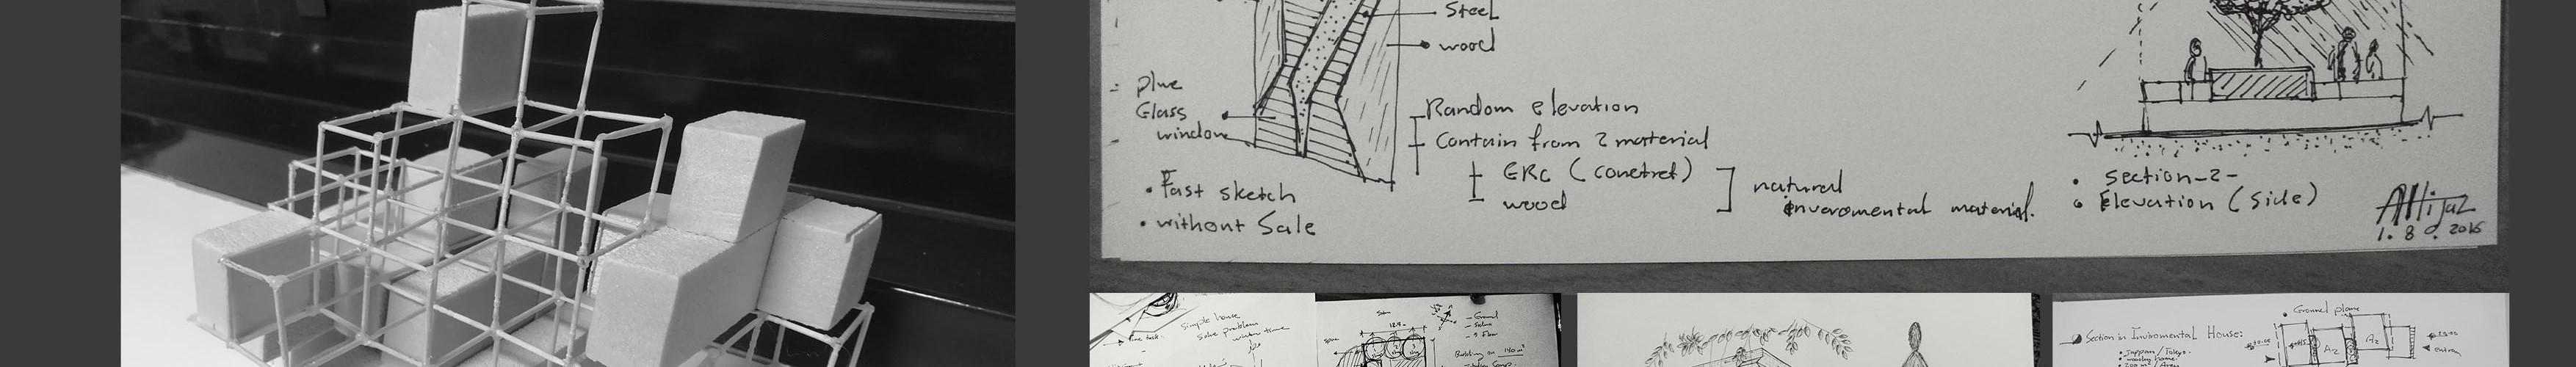 Steel
wood
plue
Glass
window
Random elevation
Contain from 2 material
GRC (conctret)
wood
natural
inveromental material.
• Fast sketch
• without Sale
• section-2-
• Elevation (side)
1. 8. 2016
Simple house
solve problem
Ground plane
Section in Inviromental House:
A2
A2